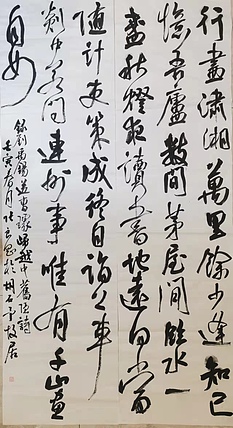 行盡瀟湘萬里餘少逢知己
憶吾廬數間茅屋閒臨水一
盞秋燈夜讀書地遠何當
隨計吏策成終自詣公車
剡中若問連州事唯有千山畫
不如
錄劉禹錫送曹璩歸越中舊隱詩
壬寅春月 於 州 故居